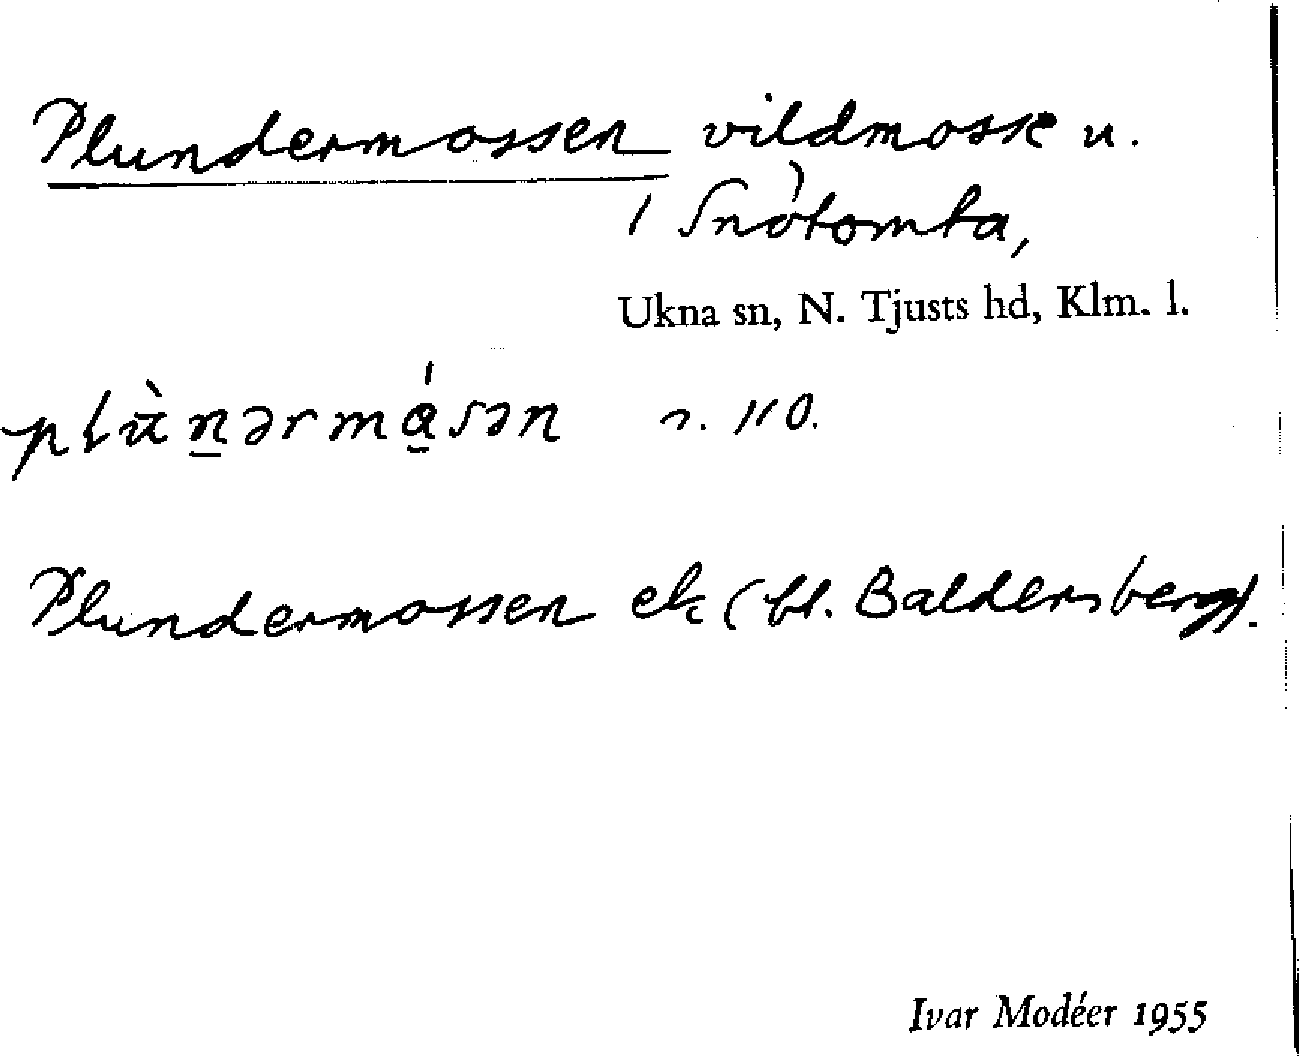 Plundermossen vildmosse u.
1 Snòtomta,
Ukna sn, N. Tjusts hd, Klm. l.
n. 110.
Plundermossen ek (bl. Baldersberg).
Ivar Modéer 1955